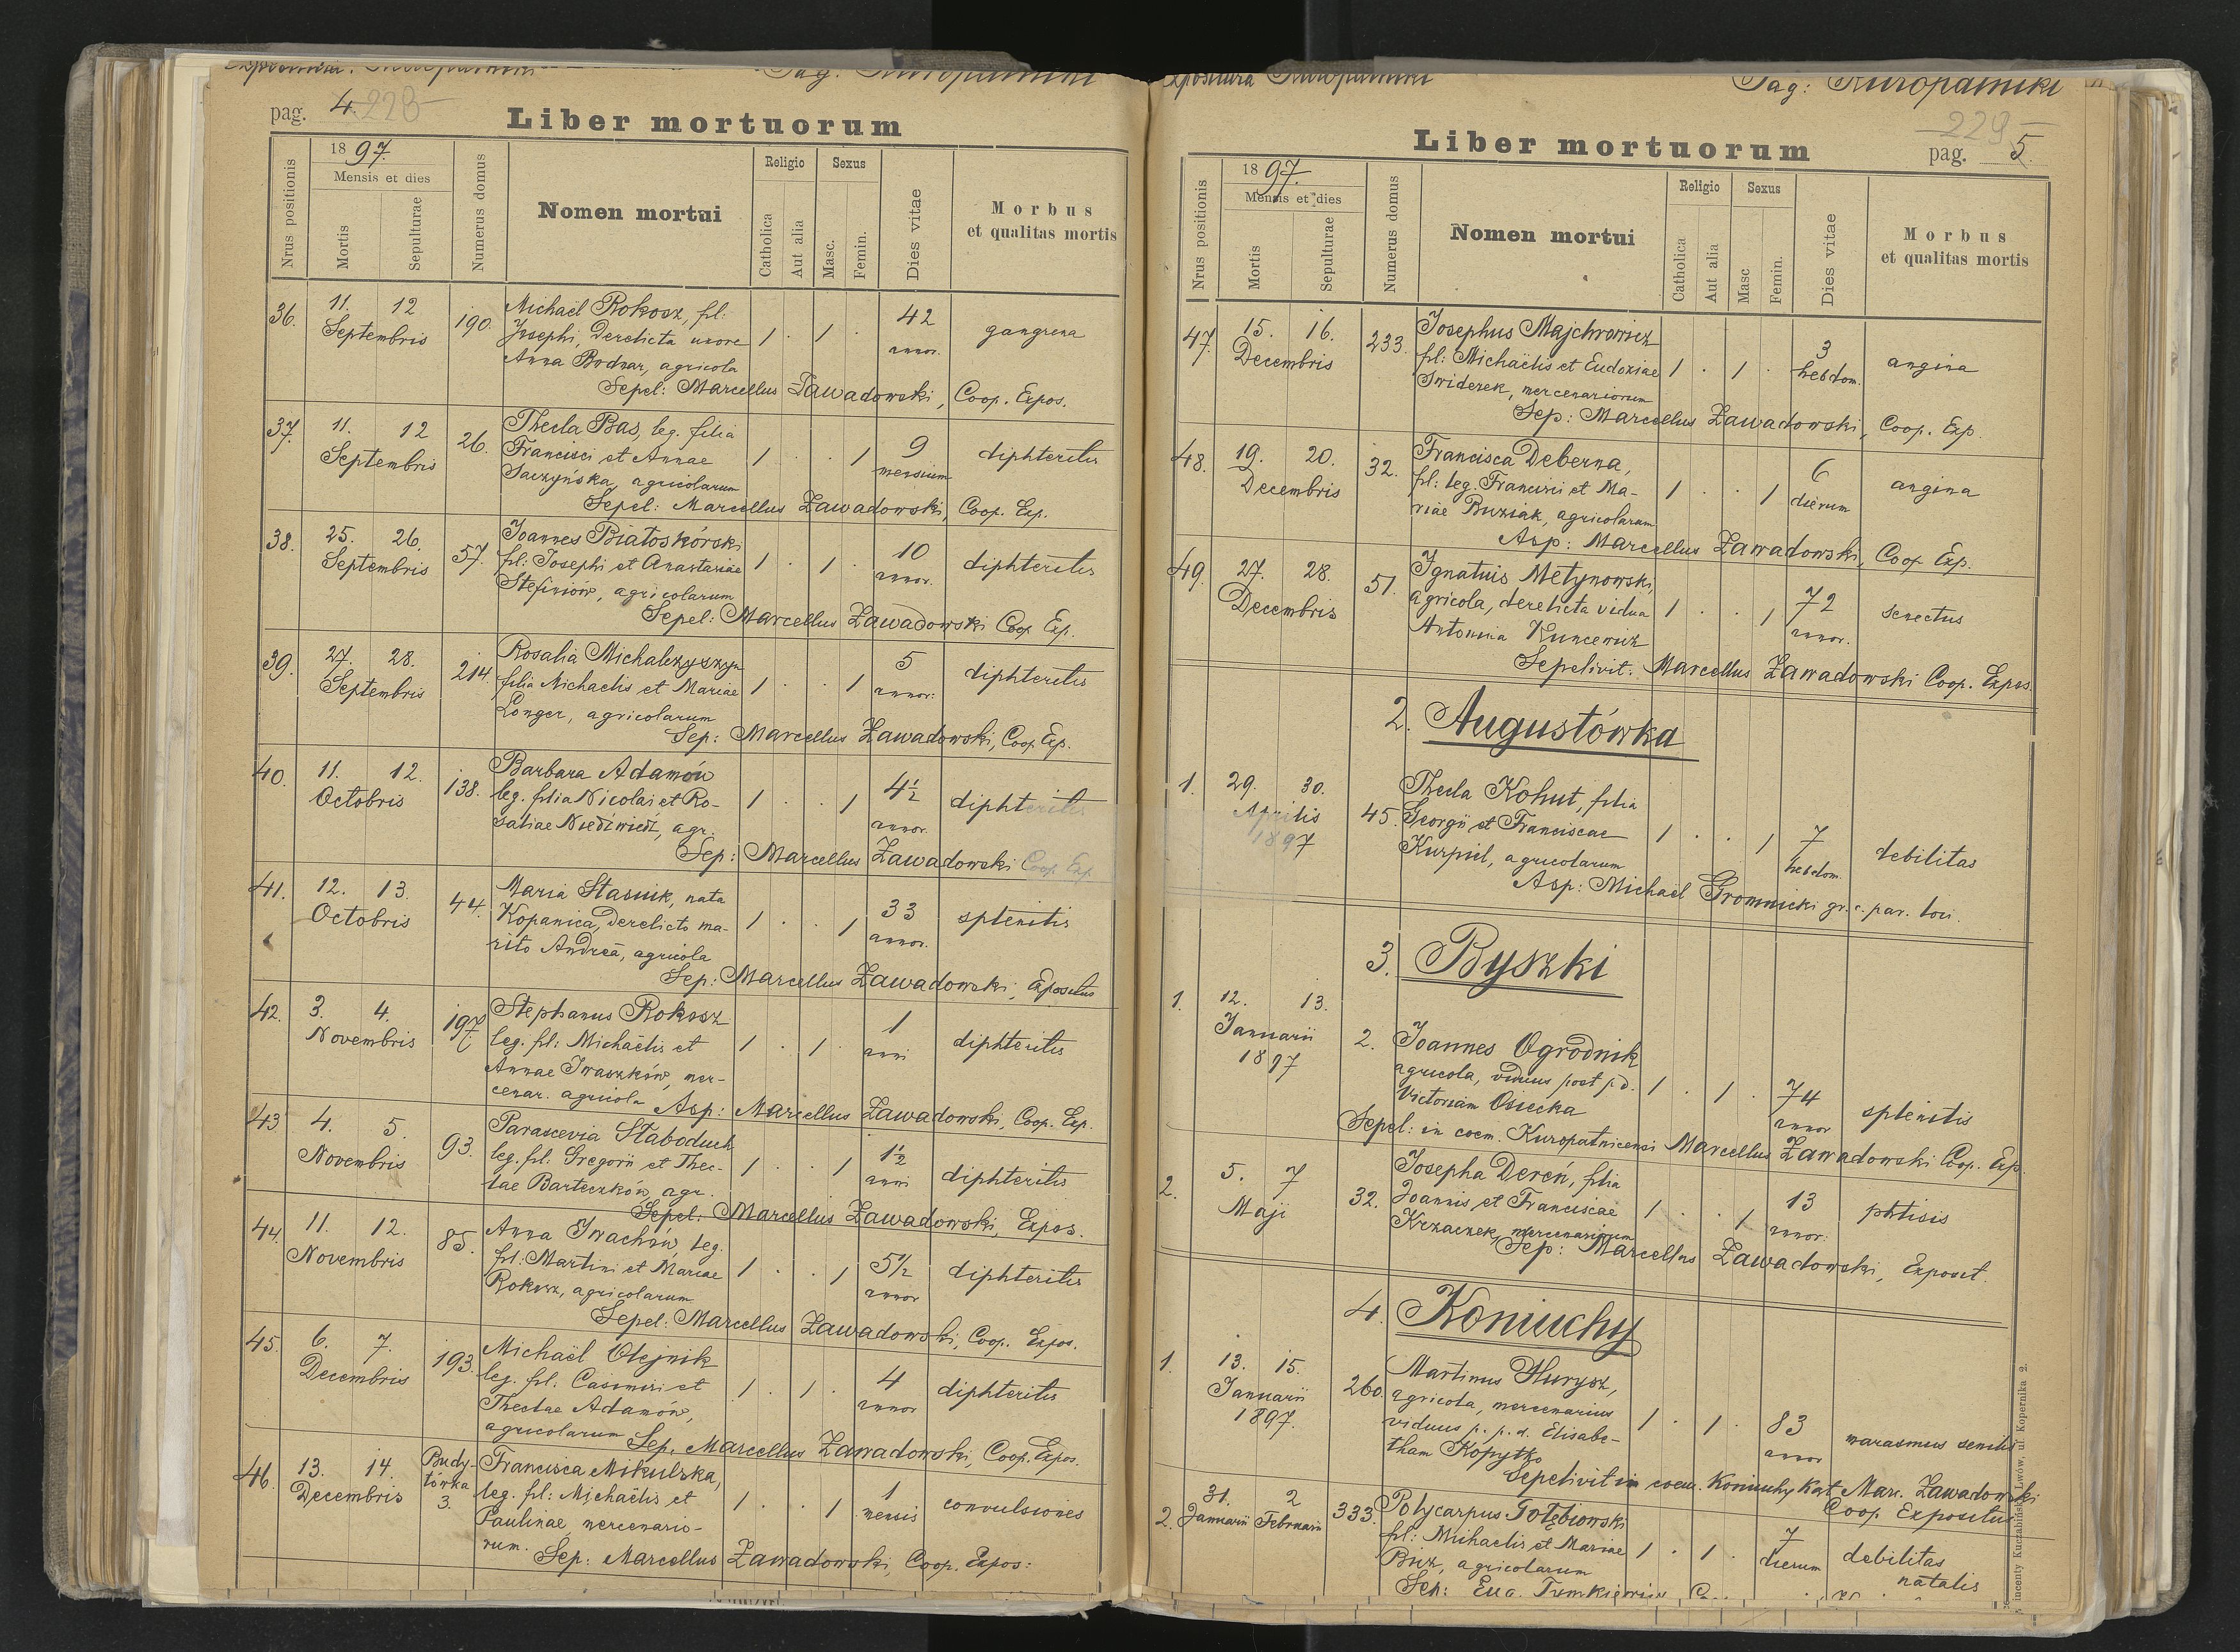 pag. 4. 228
Liber mortuorum
Nrus positionis
1897.
Mensis et dies
Mortis
Sepulturae
Numerus domus
Nomen mortui
Religio
Catholica
Aut alia
Sexus
Masc.
Femin.
Dies vitae
Morbus
et qualitas mortis
36. 11. 12 Septembris 190. Michaël Rokosz, fil: 1 . 1 . 42 annor. gangrena
Josephi, derelicta uxore
Anna Bodnar, agricola
Sepel: Marcellus Zawadowski, Coop. Expos.
37. 11. 12 Septembris 26. Thecla Bas, leg. filia 1 . . 1 9 mensium diphteritis
Francisci et Annae
Saczyńska, agricolarum
Sepel: Marcellus Zawadowski, Coop. Exp.
38. 25. 26. Septembris 57. Joannes Białoskórski 1 . 1 . 10 annor. diphteritis
fil: Josephi et Anastasiae
Stefiniów, agricolarum
Sepel: Marcellus Zawadowski Coop Exp.
39. 27. 28. Septembris 214. Rosalia Michalczyszyn 1 . . 1 5 annor: diphteritis
filia Michaelis et Mariae
Longer, agricolarum
Sep: Marcellus Zawadowski, Coop. Exp.
40. 11. 12. Octobris 138. Barbara Adamów 1 . . 1 4½ annor. diphteritis
leg. filia Nicolai et Ro-
saliae Niedźwiedź, agr.
Sep: Marcellus Zawadowski Coop Exp
41. 12. 13. Octobris 44. Maria Stasiuk, nata 1 . . 1 33 annor. splenitis
Kopanica, derelicto ma-
rito Andreä, agricola
Sep: Marcellus Zawadowski, Expositus
42. 3. 4. Novembris 197. Stephanus Rokosz 1 . 1 . 1 anni diphteritis
leg. fil: Michaëlis et
Annae Iwaszków, mer-
cenar. agricola Asp: Marcellus Zawadowski, Coop. Exp.
43. 4. 5. Novembris 93. Parascevia Słaboduch 1 . . 1 1½ anni diphteritis
leg. fil: Gregorii et Thec-
lae Barteczków, agr.
Sepel: Marcellus Zawadowski, Expos.
44. 11. 12. Novembris 85. Anna Iwachów, leg. 1 . . 1 5½ annor diphteritis
fil: Martini et Mariae
Rokosz, agricolarum
Sepel: Marcellus Zawadowski, Coop. Expos.
45. 6. 7. Decembris 193. Michaël Olejnik 1 . 1 . 4 annor diphteritis
leg. fil. Casimiri et
Theclae Adamów,
agricolarum Sep. Marcellus Zawadowski, Coop. Expos.
46. 13. 14. Decembris Budy-
łówka
3. Francisca Mikulska, 1 . . 1 1 mensis convulsiones
leg. fil: Michaëlis et
Paulinae, mercenario-
rum. Sep: Marcellus Zawadowski, Coop. Expos:
Expositura Kuropatniki Pag: Kuropatniki
229
Liber mortuorum
pag. 5.
Nrus positionis
1897.
Mensis et dies
Mortis
Sepulturae
Numerus domus
Nomen mortui
Religio
Catholica
Aut alia
Sexus
Masc
Femin.
Dies vitae
Morbus
et qualitas mortis
47. 15. 16. Decembris 233. Josephus Majchrowicz 1 . 1 . 3 hebdom. angina
fil: Michaëlis et Eudoxiae
Swiderek, mercenariorum
Sep: Marcellus Zawadowski, Coop. Exp.
48. 19. 20. Decembris 32. Francisca Deberna, 1 . . 1 6 dierum angina
fil: leg. Francisci et Ma-
riae Buziak, agricolarum
Asp: Marcellus Zawadowski, Coop Exp.
49. 27. 28. Decembris 51. Ignatius Metynowski, 1 . . 1 72 annor. senectus
agricola, derelicta vidua
Antonina Kuncewicz
Sepelivit: Marcellus Zawadowski Coop. Expos.
2. Augustówka
1. 29. 30. Aprilis 1897 45. Thecla Kohut, filia 1 . . 1 7 hebdom. debilitas
Georgii et Franciscae
Kurpiel, agricolarum
Asp: Michaël Gromnicki gr. c. par. loci.
3. Byszki
1. 12. 13. Januarii 1897 2. Joannes Ogrodnik 1 . 1 . 74 annor splenitis
agricola, viduus post p.d.
Victoriam Osiecka
Sepel: in coem. Kuropatnicensi Marcellus Zawadowski Coop. Exp.
2. 5. 7 Maji 32. Josepha Dereń, filia 1 . . 1 13 annor. phtisis
Joannis et Franciscae
Krzaczek, mercenariorum
Sep: Marcellus Zawadowski, Exposit.
4. Koniuchy
1. 13. 15. Januarii 1897. 260. Martinus Hurysz, 1 . 1 . 83 annor marasmus senilis
agricola, mercenarius
viduus p. p. d. Elisabe-
tham Kopytko
Sepelivit in coem. Koniuchy Kat Marc. Zawadowski
Coop Expositus
2. 31. Januarii 2 Februarii 333. Polycarpus Gołębiowski 1 . 1 . 7 dierum debilitas
natalis
fil: Michaelis et Mariae
Buż, agricolarum
Sep: Eug.
Wincenty Kuczabiński, Lwów, ul. Kopernika 2.